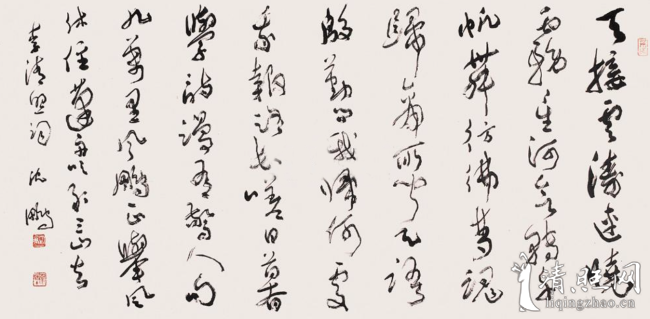 天接雲濤連曉
霧星河欲轉千
帆舞彷彿夢魂
歸帝所聞天語
殷勤問我歸何處
我報路長嗟日暮
學詩謾有驚人句
九萬里風鵬正舉風
休住蓬舟吹取三山去
李清照詞 沈鵬